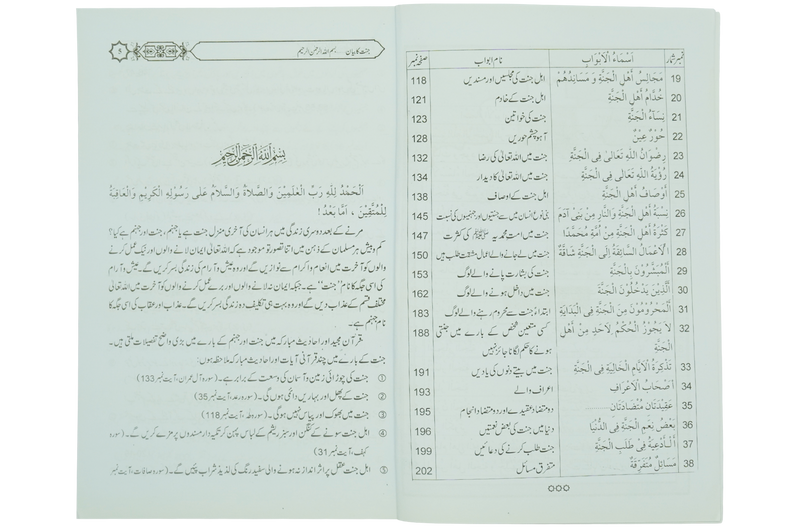 نمبر شمار اَسْمَاءُ الْاَبْوَابِ نام ابواب صفحہ نمبر
19 مَجَالِسُ اَهْلِ الْجَنَّةِ وَ مَسَانِدُهُمْ اہل جنت کی مجلسیں اور مسندیں 118
20 خُدَّامُ اَهْلِ الْجَنَّةِ اہل جنت کے خادم 121
21 نِسَآءُ الْجَنَّةِ جنت کی خواتین 123
22 حُوْرٌ عِيْنٌ آہو چشم حوریں 128
23 رِضْوَانُ اللّٰهِ تَعَالٰى فِى الْجَنَّةِ جنت میں اللہ تعالیٰ کی رضا 132
24 رُؤْيَةُ اللّٰهِ تَعَالٰى فِى الْجَنَّةِ جنت میں اللہ تعالیٰ کا دیدار 134
25 اَوْصَافُ اَهْلِ الْجَنَّةِ اہل جنت کے اوصاف 138
26 نِسْبَةُ اَهْلِ الْجَنَّةِ وَالنَّارِ مِنْ بَنِى آدَمَ بنی نوع انسان میں سے جنتیوں اور جہنمیوں کی نسبت 145
27 كَثْرَةُ اَهْلِ الْجَنَّةِ مِنْ اُمَّةِ مُحَمَّدٍ جنت میں امت محمدیہ ﷺ کی کثرت 147
28 اَلْاَعْمَالُ السَّابِقَةُ اِلَى الْجَنَّةِ شَاقَّةٌ جنت میں لے جانے والے اعمال مشقت طلب ہیں 150
29 اَلْمُبَشَّرُوْنَ بِالْجَنَّةِ جنت کی بشارت پانے والے لوگ 153
30 اَلَّذِيْنَ يَدْخُلُوْنَ الْجَنَّةَ جنت میں داخل ہونے والے لوگ 162
31 اَلْمَحْرُوْمُوْنَ مِنَ الْجَنَّةِ فِى الْبِدَايَةِ ابتداءً جنت سے محروم رہنے والے لوگ 183
32 لَا يَجُوْزُ الْحُكْمُ لِاَحَدٍ مِنْ اَهْلِ کسی متعین شخص کے بارے میں جنتی 188
الْجَنَّةِ ہونے کا حکم لگانا جائز نہیں
33 تَذْكِرَةُ الْاَيَّامِ الْخَالِيَةِ فِى الْجَنَّةِ جنت میں بیتے دنوں کی یادیں 191
34 اَصْحَابُ الْاَعْرَافِ اعراف والے 193
35 عَقِيْدَتَانِ مُتَضَادَّتَانِ دو متضاد عقیدے اور دو متضاد انجام 195
36 بَعْضُ نِعَمِ الْجَنَّةِ فِى الدُّنْيَا دنیا میں جنت کی بعض نعمتیں 196
37 اَلْاَدْعِيَةُ فِى طَلَبِ الْجَنَّةِ جنت طلب کرنے کی دعائیں 199
38 مَسَائِلُ مُتَفَرِّقَةٌ متفرق مسائل 202
جنت کا بیان ..... بسم اللہ الرحمن الرحیم 5
بِسْمِ اللّٰهِ الرَّحْمٰنِ الرَّحِيْمِ
اَلْحَمْدُ لِلّٰهِ رَبِّ الْعَلَمِيْنَ وَالصَّلَاةُ وَالسَّلَامُ عَلٰى رَسُوْلِهِ الْكَرِيْمِ وَالْعَاقِبَةُ
لِلْمُتَّقِيْنَ ، اَمَّا بَعْدُ !
مرنے کے بعد دوسری زندگی میں ہر انسان کی آخری منزل جنت ہے یا جہنم، جنت اور جہنم ہے کیا؟
کم و بیش ہر مسلمان کے ذہن میں اتنا تصور تو موجود ہے کہ اللہ تعالیٰ ایمان لانے والوں اور نیک عمل کرنے
والوں کو آخرت میں انعام و اکرام سے نوازیں گے اور وہ عیش و آرام کی زندگی بسر کریں گے۔ عیش و آرام
کی اسی جگہ کا نام "جنت" ہے۔ جبکہ ایمان نہ لانے والوں اور برے عمل کرنے والوں کو آخرت میں اللہ تعالیٰ
مختلف قسم کے عذاب دیں گے اور وہ بہت ہی تکلیف دہ زندگی بسر کریں گے۔ عذاب اور عقاب کی اسی جگہ کا
نام جہنم ہے۔
قرآن مجید اور احادیث مبارکہ میں جنت اور جہنم کے بارے میں بڑی واضح تفصیلات ملتی ہیں۔
جنت کے بارے میں چند قرآنی آیات اور احادیث مبارکہ ملاحظہ ہوں:
① جنت کی چوڑائی زمین و آسمان کی وسعت کے برابر ہے۔ (سورہ آل عمران، آیت نمبر 133)
② جنت کے پھل اور بہاریں دائمی ہوں گی۔ (سورہ رعد، آیت نمبر 35)
③ جنت میں بھوک اور پیاس نہیں ہوگی۔ (سورہ طہ، آیت نمبر 118)
④ اہل جنت سونے کے کنگن اور سبز ریشم کے لباس پہن کر تکیہ دار مسندوں پر مزے کریں گے۔ (سورہ
کہف، آیت نمبر 31)
⑤ اہل جنت عقل پر اثر انداز نہ ہونے والی سفید رنگ کی لذیذ شراب پئیں گے۔ (سورہ صافات، آیت نمبر